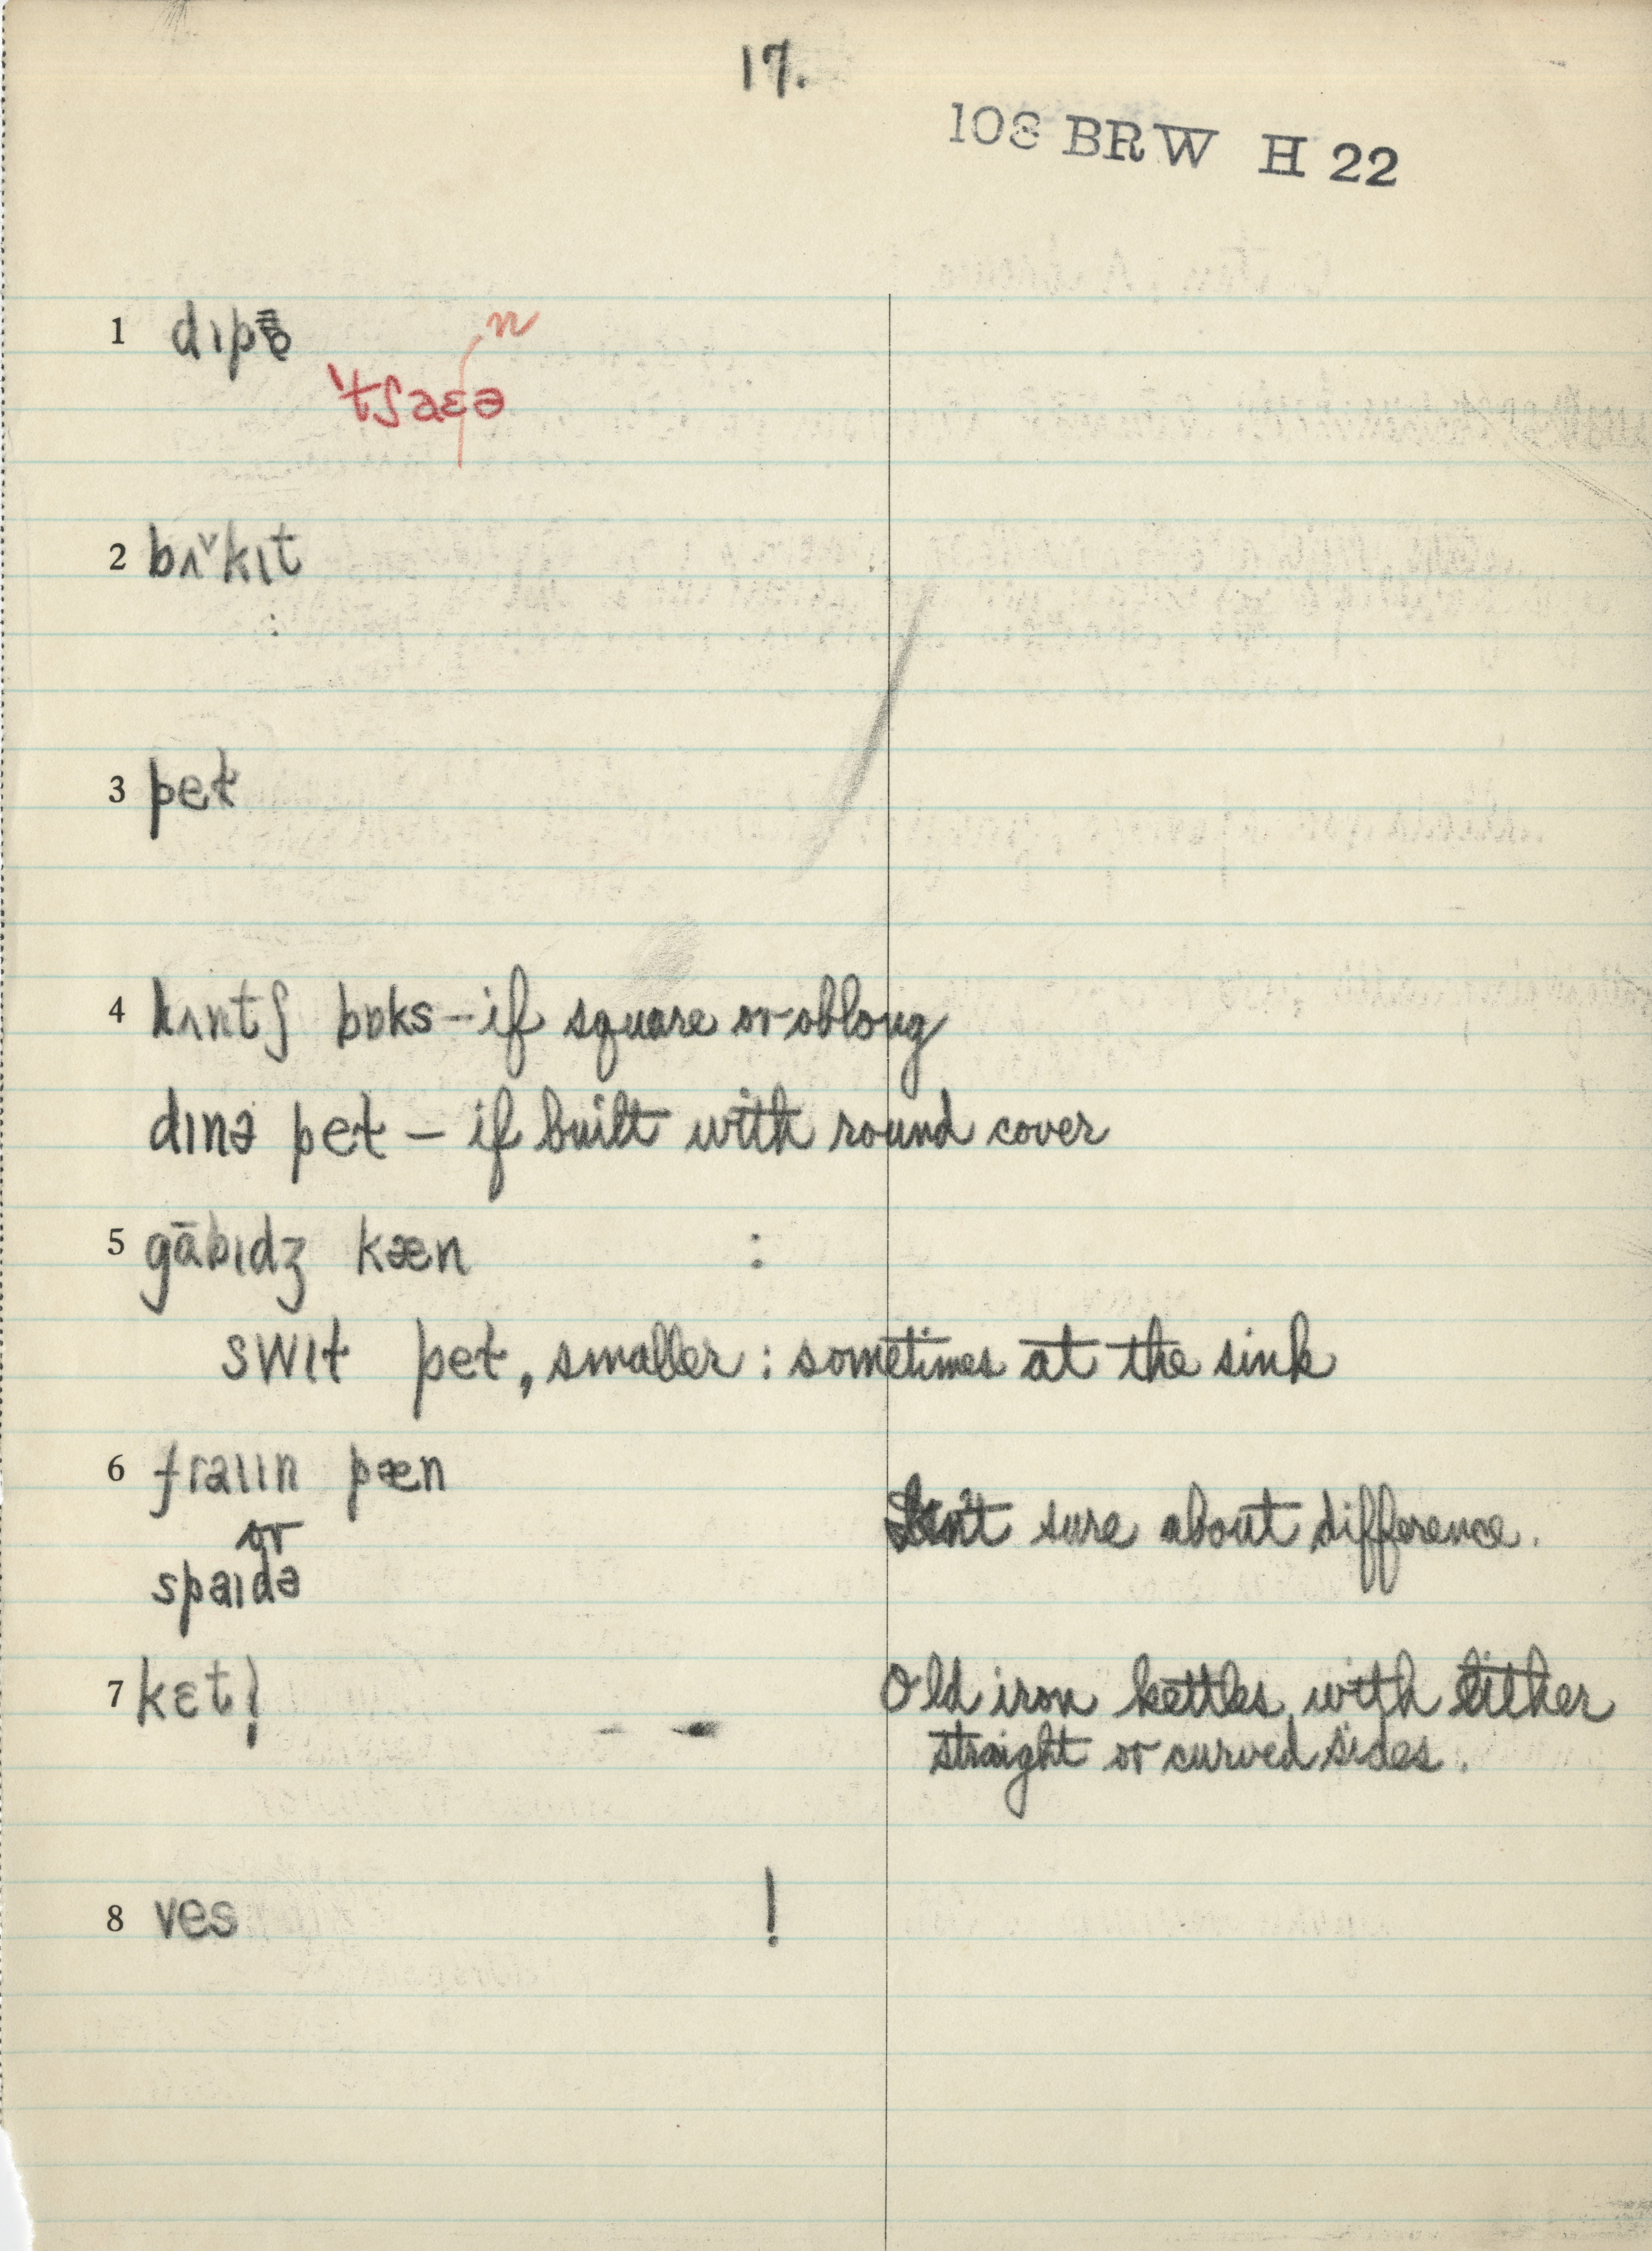 17.
108 BRW H 22
1 dɪpə
n
'tʃaɛə
2 bʌ˅kɪt
3 pet
4 lʌntʃ bɒks – if square or oblong
dɪnə pet – if built with round cover
5 gābɪdʒ kæn :
swɪt pet, smaller : sometimes at the sink
6 fraɪɪn pæn
or
spaɪdə
Isn't sure about difference.
7 kɛtl̩
Old iron kettles with either
straight or curved sides.
8 ves !